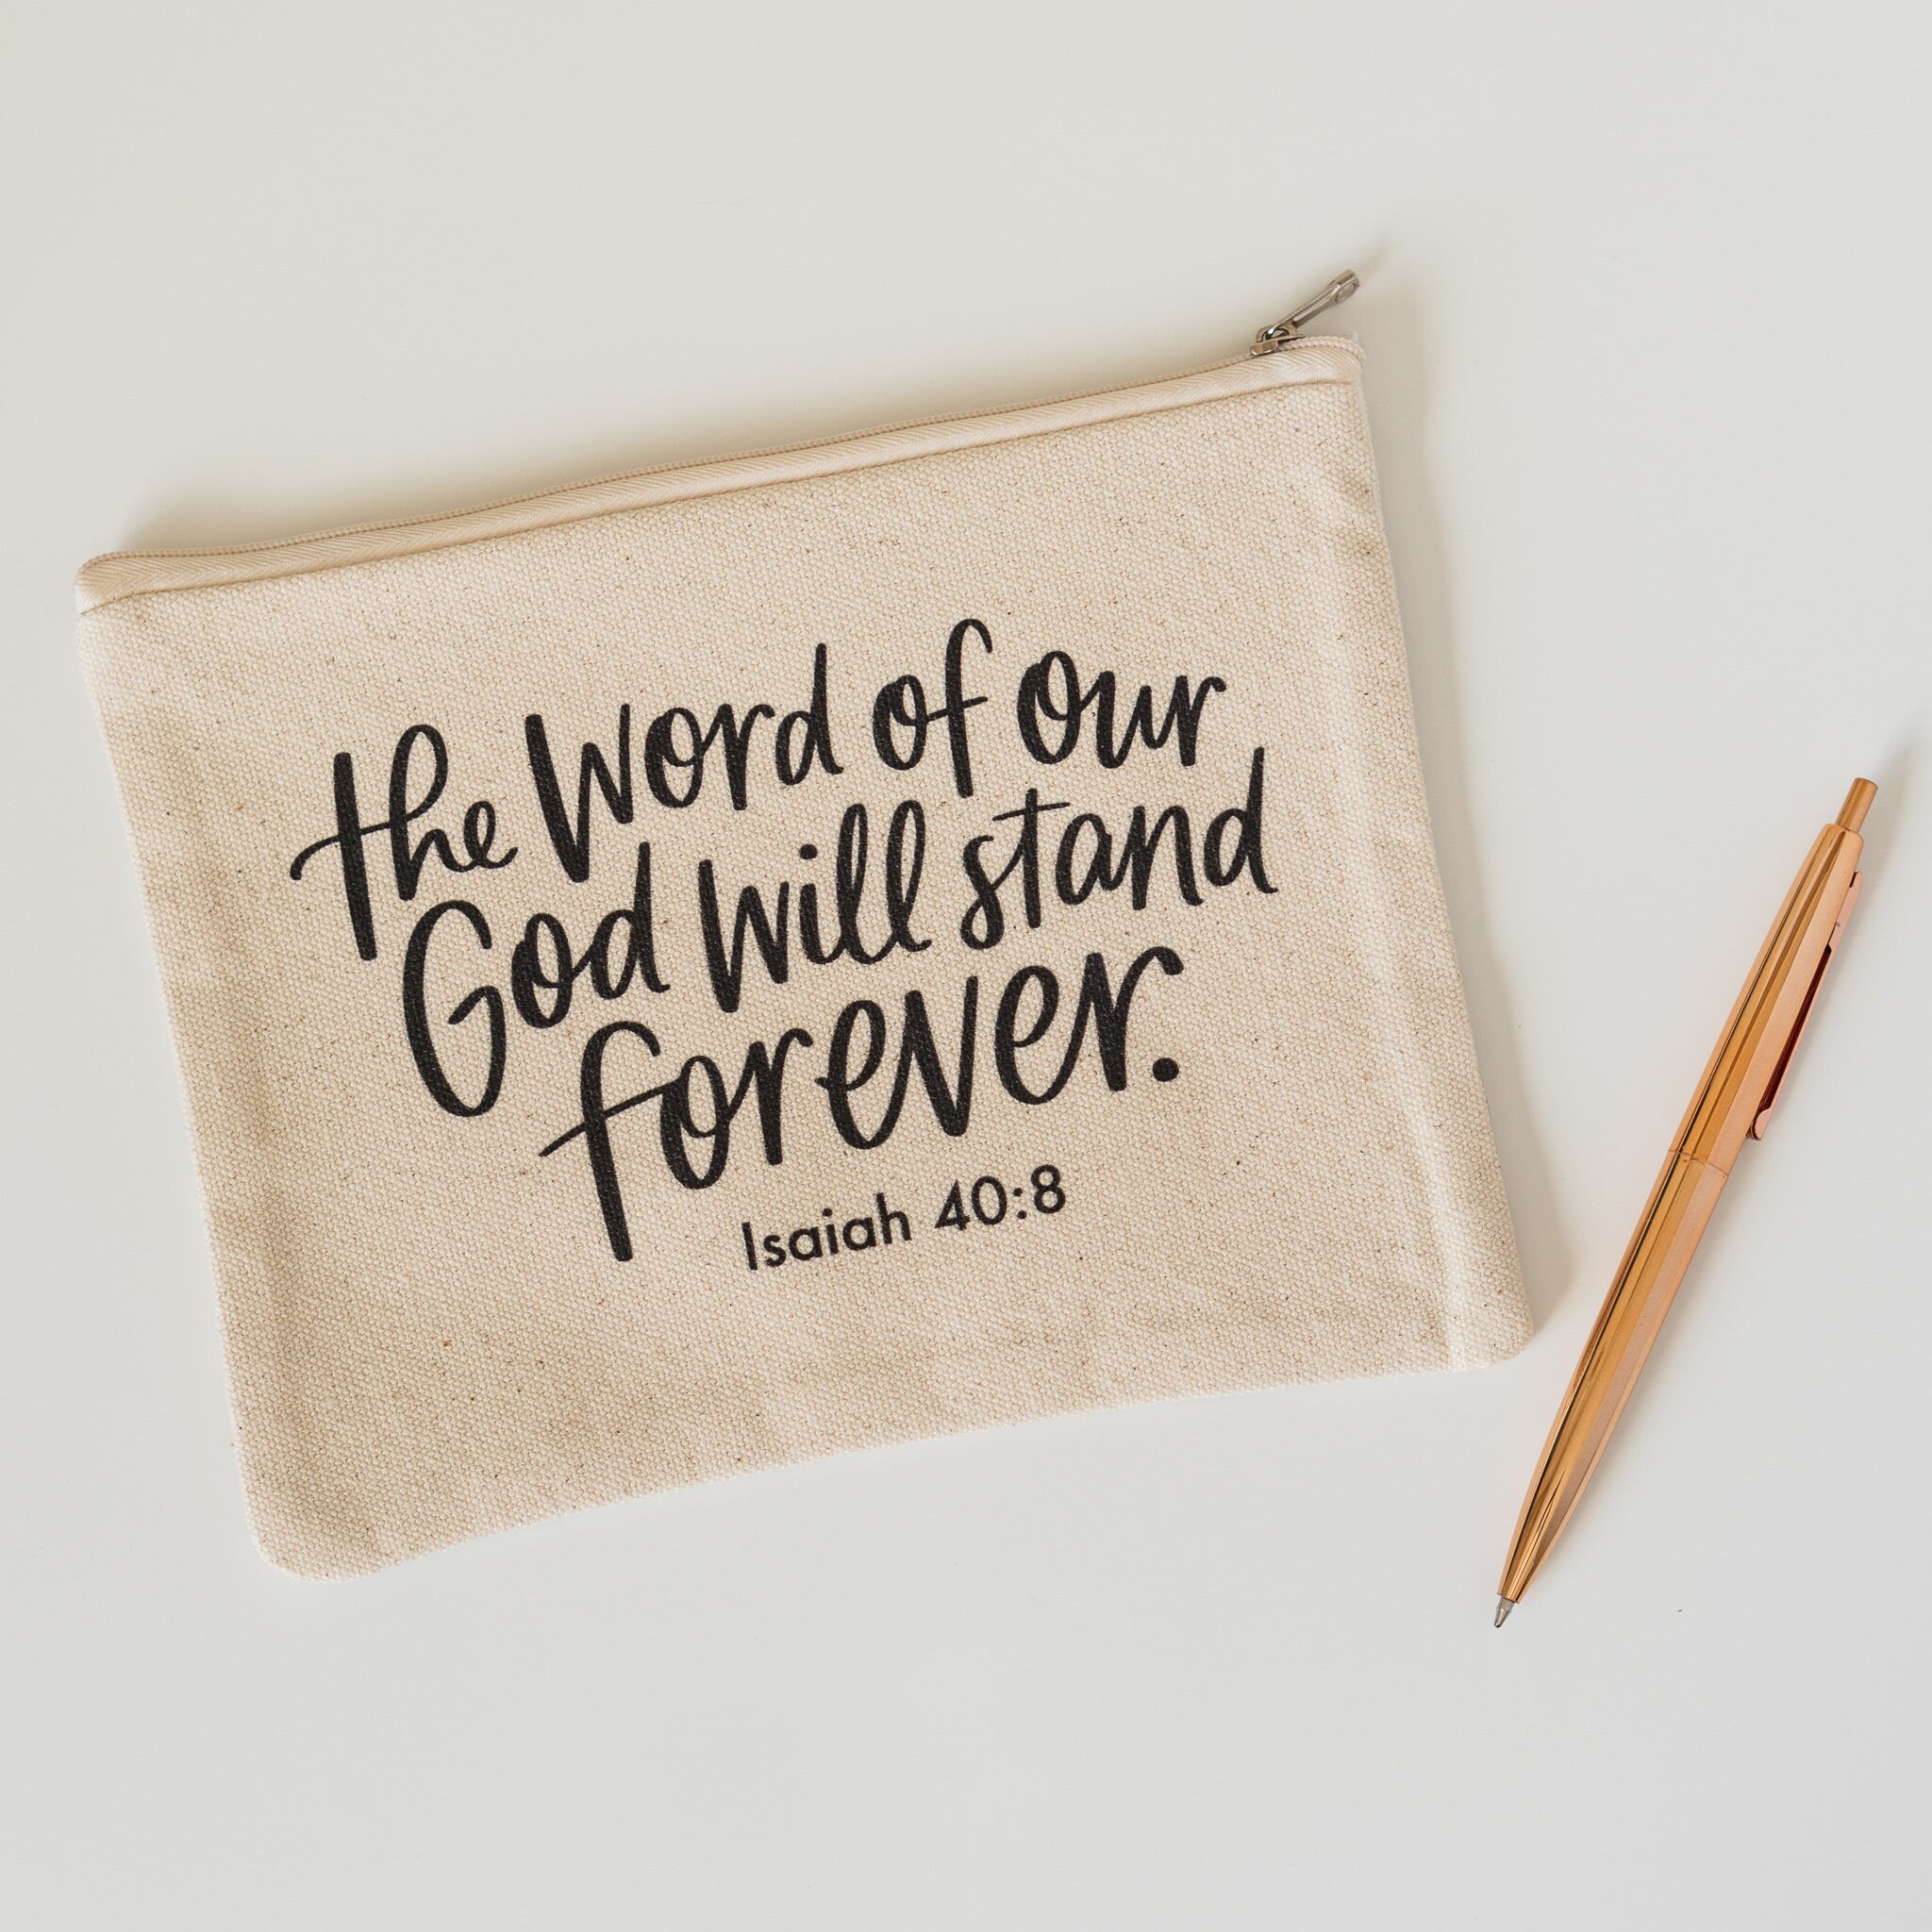 the word of our
God will stand
forever.
Isaiah 40:8